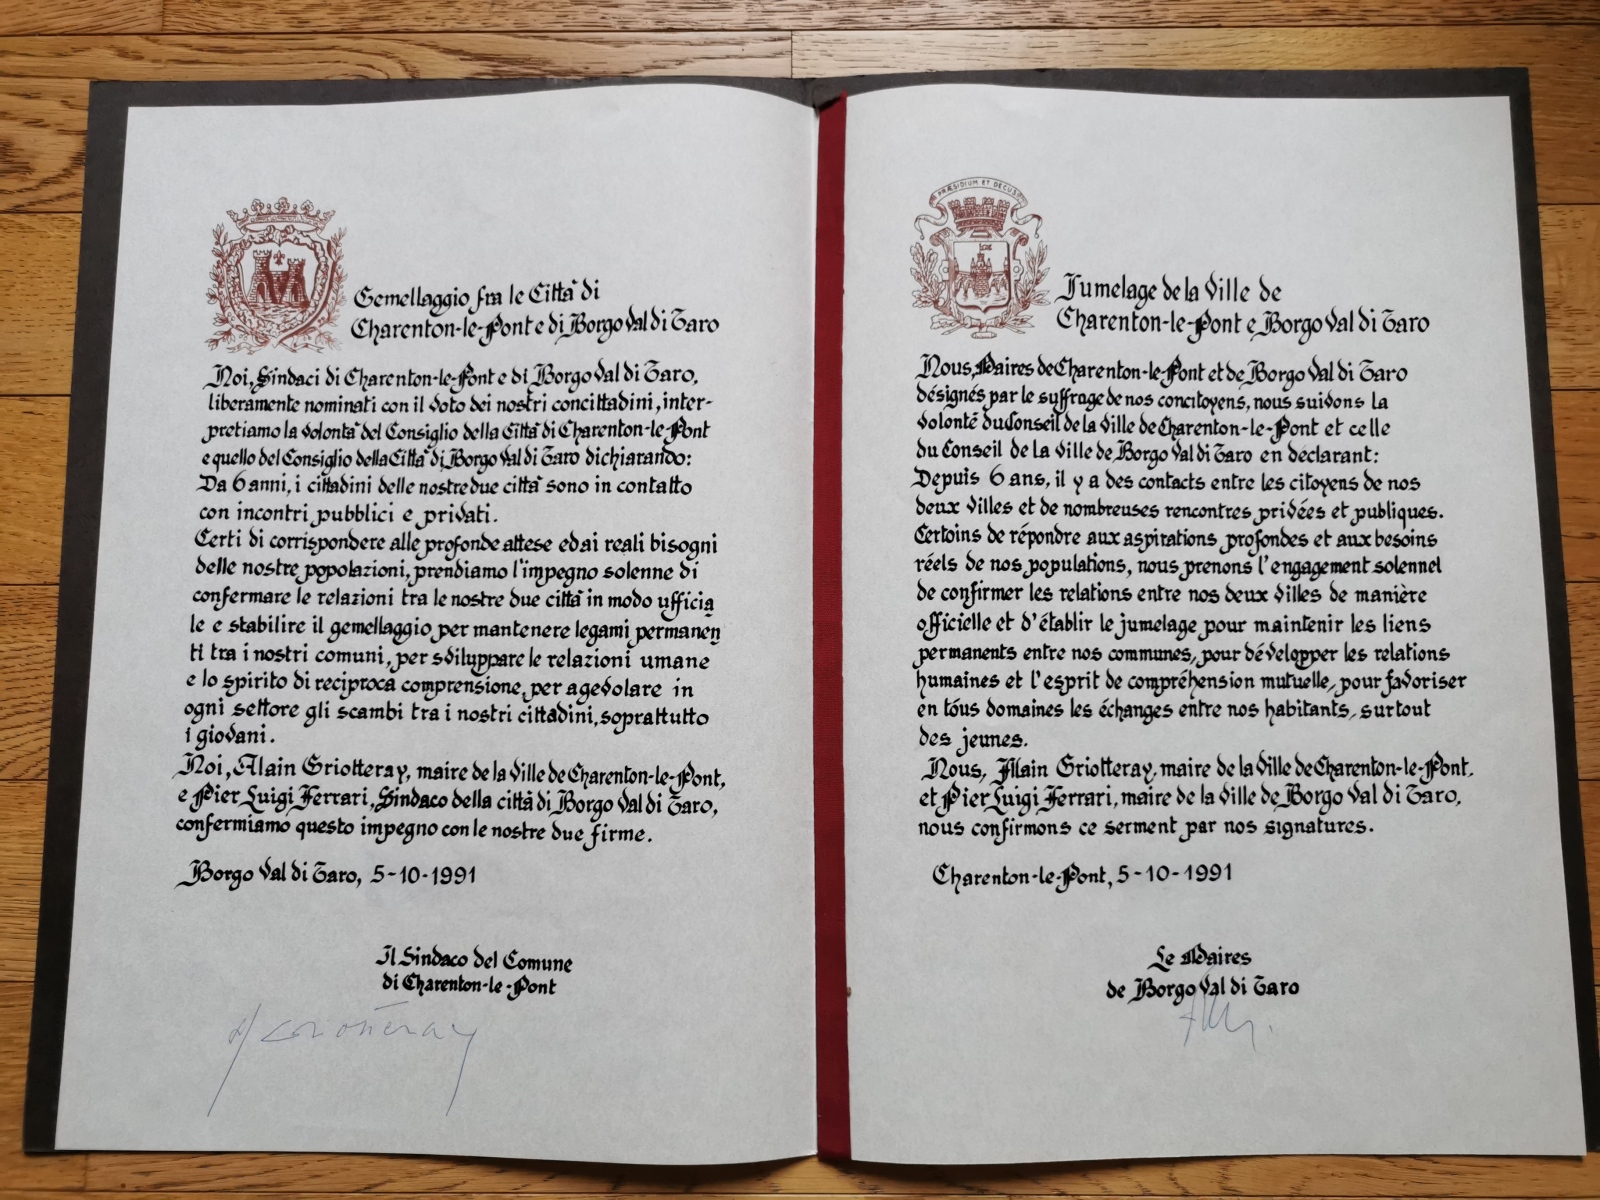 Gemellaggio fra le Città di
Charenton-le-Pont e di Borgo Val di Taro
Noi, Sindaci di Charenton-le-Pont e di Borgo Val di Taro,
liberamente nominati con il voto dei nostri concittadini, inter-
pretiamo la volontà del Consiglio della Città di Charenton-le-Pont
e quello del Consiglio della Città di Borgo Val di Taro dichiarando:
Da 6 anni, i cittadini delle nostre due città sono in contatto
con incontri pubblici e privati.
Certi di corrispondere alle profonde attese ed ai reali bisogni
delle nostre popolazioni, prendiamo l'impegno solenne di
confermare le relazioni tra le nostre due città in modo ufficia
le e stabilire il gemellaggio per mantenere legami permanen
ti tra i nostri comuni, per sviluppare le relazioni umane
e lo spirito di reciproca comprensione, per agevolare in
ogni settore gli scambi tra i nostri cittadini, soprattutto
i giovani.
Noi, Alain Griotteray, maire de la Ville de Charenton-le-Pont,
e Pier Luigi Ferrari, Sindaco della città di Borgo Val di Taro,
confermiamo questo impegno con le nostre due firme.
Borgo Val di Taro, 5-10-1991
Il Sindaco del Comune
di Charenton-le-Pont
A Griotteray
PRÆSIDIUM ET DECUS
Jumelage de la Ville de
Charenton-le-Pont e Borgo Val di Taro
Nous, Maires de Charenton-le-Pont et de Borgo Val di Taro
désignés par le suffrage de nos concitoyens, nous suivons la
volonté du Conseil de la Ville de Charenton-le-Pont et celle
du Conseil de la Ville de Borgo Val di Taro en déclarant:
Depuis 6 ans, il y a des contacts entre les citoyens de nos
deux Villes et de nombreuses rencontres privées et publiques.
Certoins de répondre aux aspirations profondes et aux besoins
réels de nos populations, nous prenons l'engagement solennel
de confirmer les relations entre nos deux Villes de manière
officielle et d'établir le jumelage pour maintenir les liens
permanents entre nos communes, pour développer les relations
humaines et l'esprit de compréhension mutuelle, pour favoriser
en tous domaines les échanges entre nos habitants, surtout
des jeunes.
Nous, Alain Griotteray, maire de la Ville de Charenton-le-Pont,
et Pier Luigi Ferrari, maire de la Ville de Borgo Val di Taro,
nous confirmons ce serment par nos signatures.
Charenton-le-Pont, 5-10-1991
Le Maires
de Borgo Val di Taro